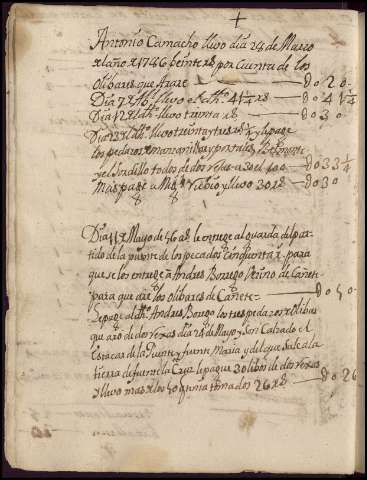 +
Antonio Camacho llevo dia 24 de Marco
del año de 1746 beinte rs por cuenta de los
Olibares que Arare — 020
Dia 7 de Abl llevo el dho 41 1/4 rs — 041 1/4
Dia 12 del dho llevo treinta rs — 030
Dia 13 del dho llevo treinta y tres rs 1/4 y le pague
los pedazos de manzanilla y
y el todos de dos rexas a 30 el 100 — 033 1/4
Mas pague a Rubio y llevo 30 rs — 030
Dia 11 de Mayo de 46 as le entregue al guarda del par-
tido de la puente de los pecados cinquenta rs para
que se los entregue a Andres Borrego Vezino de Cañete
para que are los olibares de Cañete — 050
le pague al dho Andres Borrego los tres pedazos de Olibar
que aro de dos rexas dia 24 de Mayo y son Calzado el
Estacar de la Puente y fuente Maria y del que sale a la
tierra de fuente la Cruz le pague 30 libos de dos rexas
y llevo mas de los 50 que tenia tomados 26 rs — 026